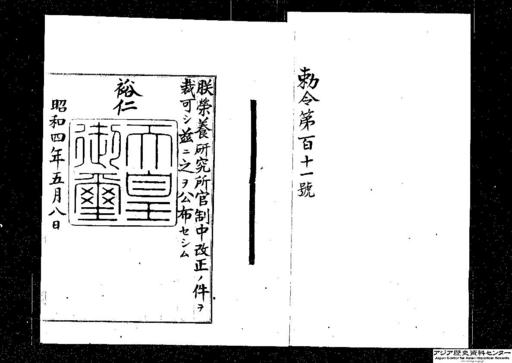 勅令第百十一號
朕榮養研究所官制中改正ノ件ヲ
裁可シ茲ニ之ヲ公布セシム
裕仁
天皇
御璽
昭和四年五月八日
アジア歴史資料センター
Japan Center for Asian Historical Records